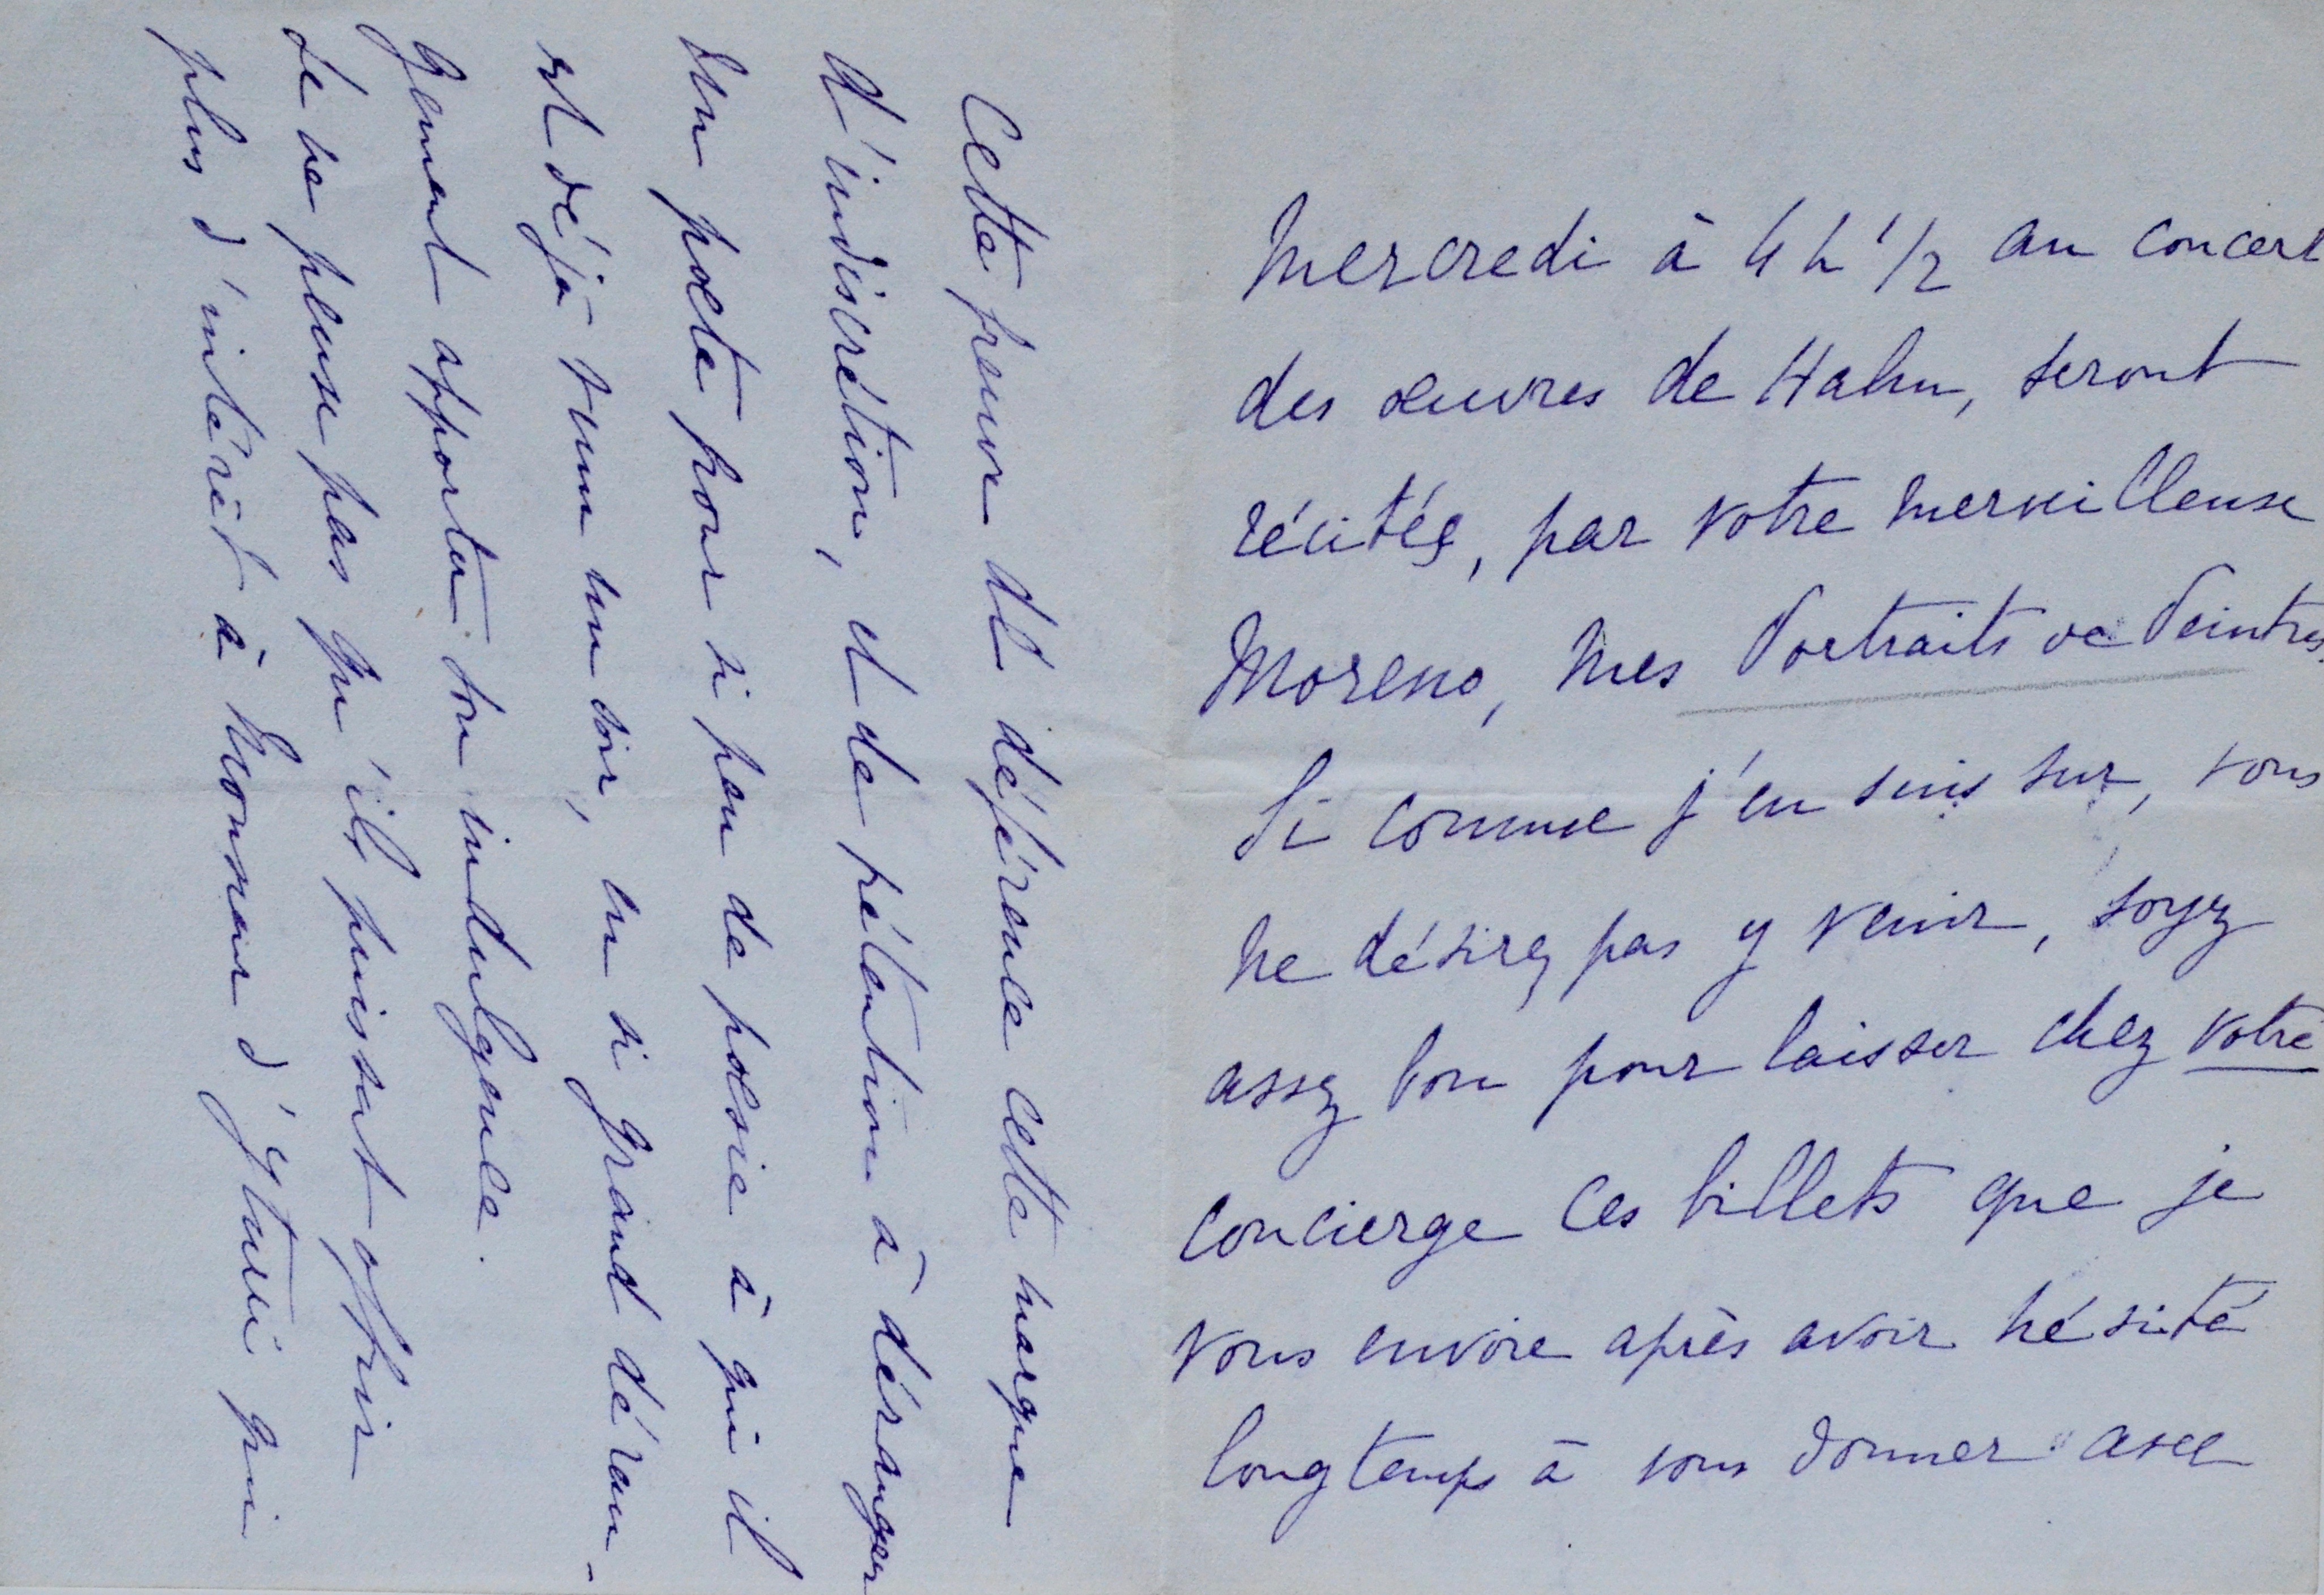 Mercredi à 4 h 1/2 au concert
des œuvres de Hahn, seront
récités, par votre merveilleuse
Moreno, mes Portraits de Peintres.
Si comme j'en suis sur, vous
ne désirez pas y venir, soyez
assez bon pour laisser chez votre
concierge ces billets que je
vous envoie après avoir hésité
longtemps à vous donner avec
Cette preuve de déférence cette marque
d'indiscrétion, et de prétention à déranger
un poète pour si peu de poésie à qui il
est déjà venu un soir, en si grand déran-
gement apporter son indulgence.
Je ne pense pas qu'ils puissent offrir
plus d'intérêt à Monsieur d'Yturri qui